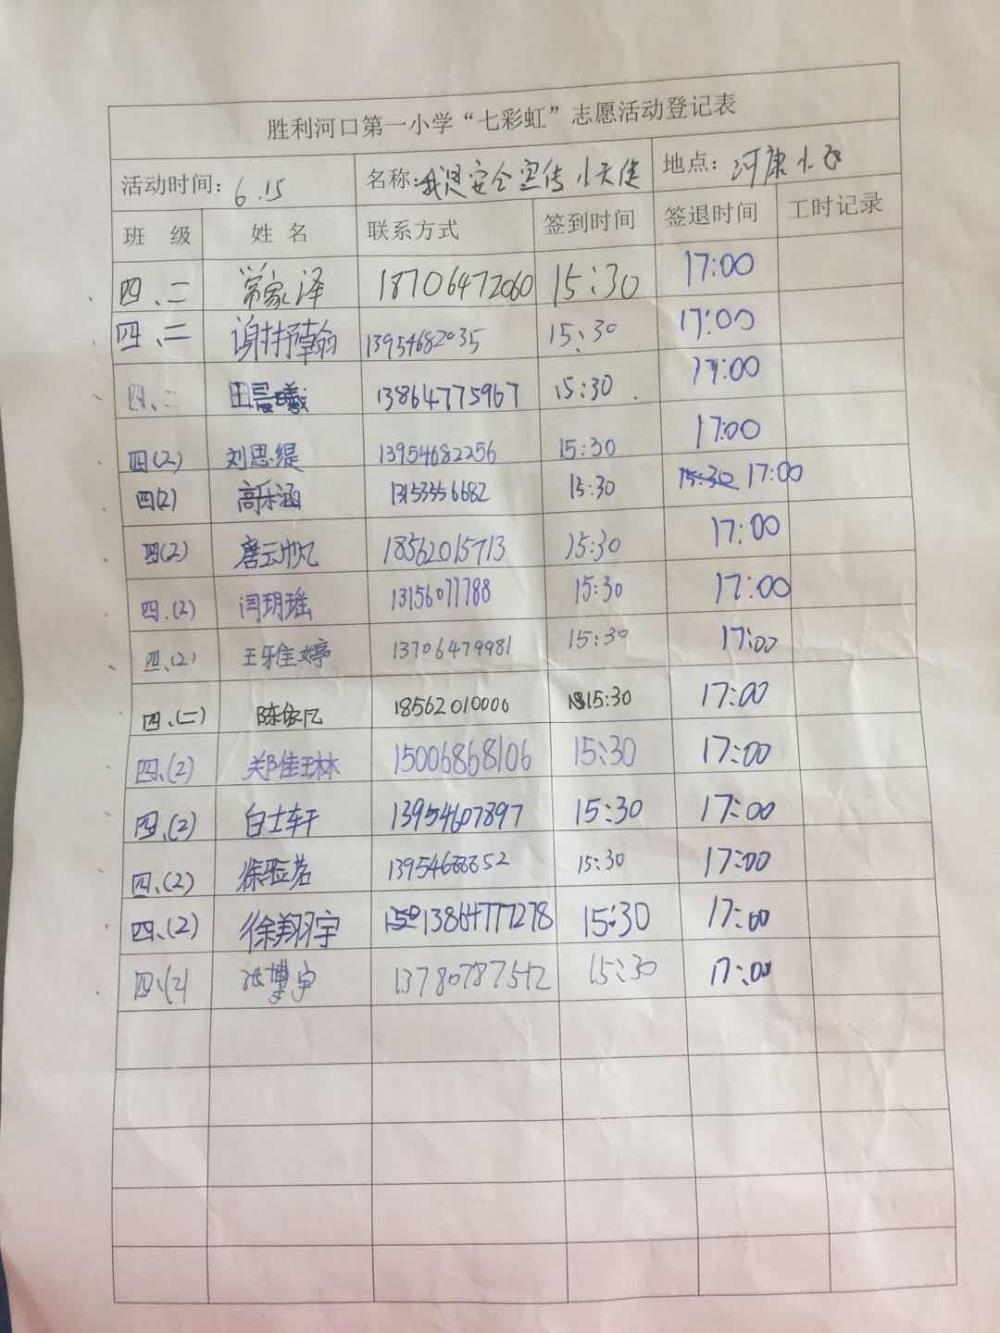 胜利河口第一小学“七彩虹”志愿活动登记表
活动时间：6.15 名称：我是安全宣传小天使 地点：河康小区
班 级 姓 名 联系方式 签到时间 签退时间 工时记录
四、二 常家泽 18706472060 15:30 17:00
四、二 谢抒翰 13954682035 15:30 17:00
四、二 田晨曦 13864775967 15:30 17:00
四(2) 刘思缇 13954682256 15:30 17:00
四(2) 高禾涵 15:30 15:30 17:00
四(2) 唐云帆 18562015713 15:30 17:00
四.(2) 闫玥瑶 13156077788 15:30 17:00
四、(2) 王雅婷 13706479981 15:30 17:00
四.(二) 18562010006 15:30 17:00
四、(2) 郑佳琳 15006868106 15:30 17:00
四、(2) 白士轩 13954607897 15:30 17:00
四、(2) 15:30 17:00
四、(2) 徐翔宇 13864777278 15:30 17:00
四、(2) 张博宇 15:30 17:00